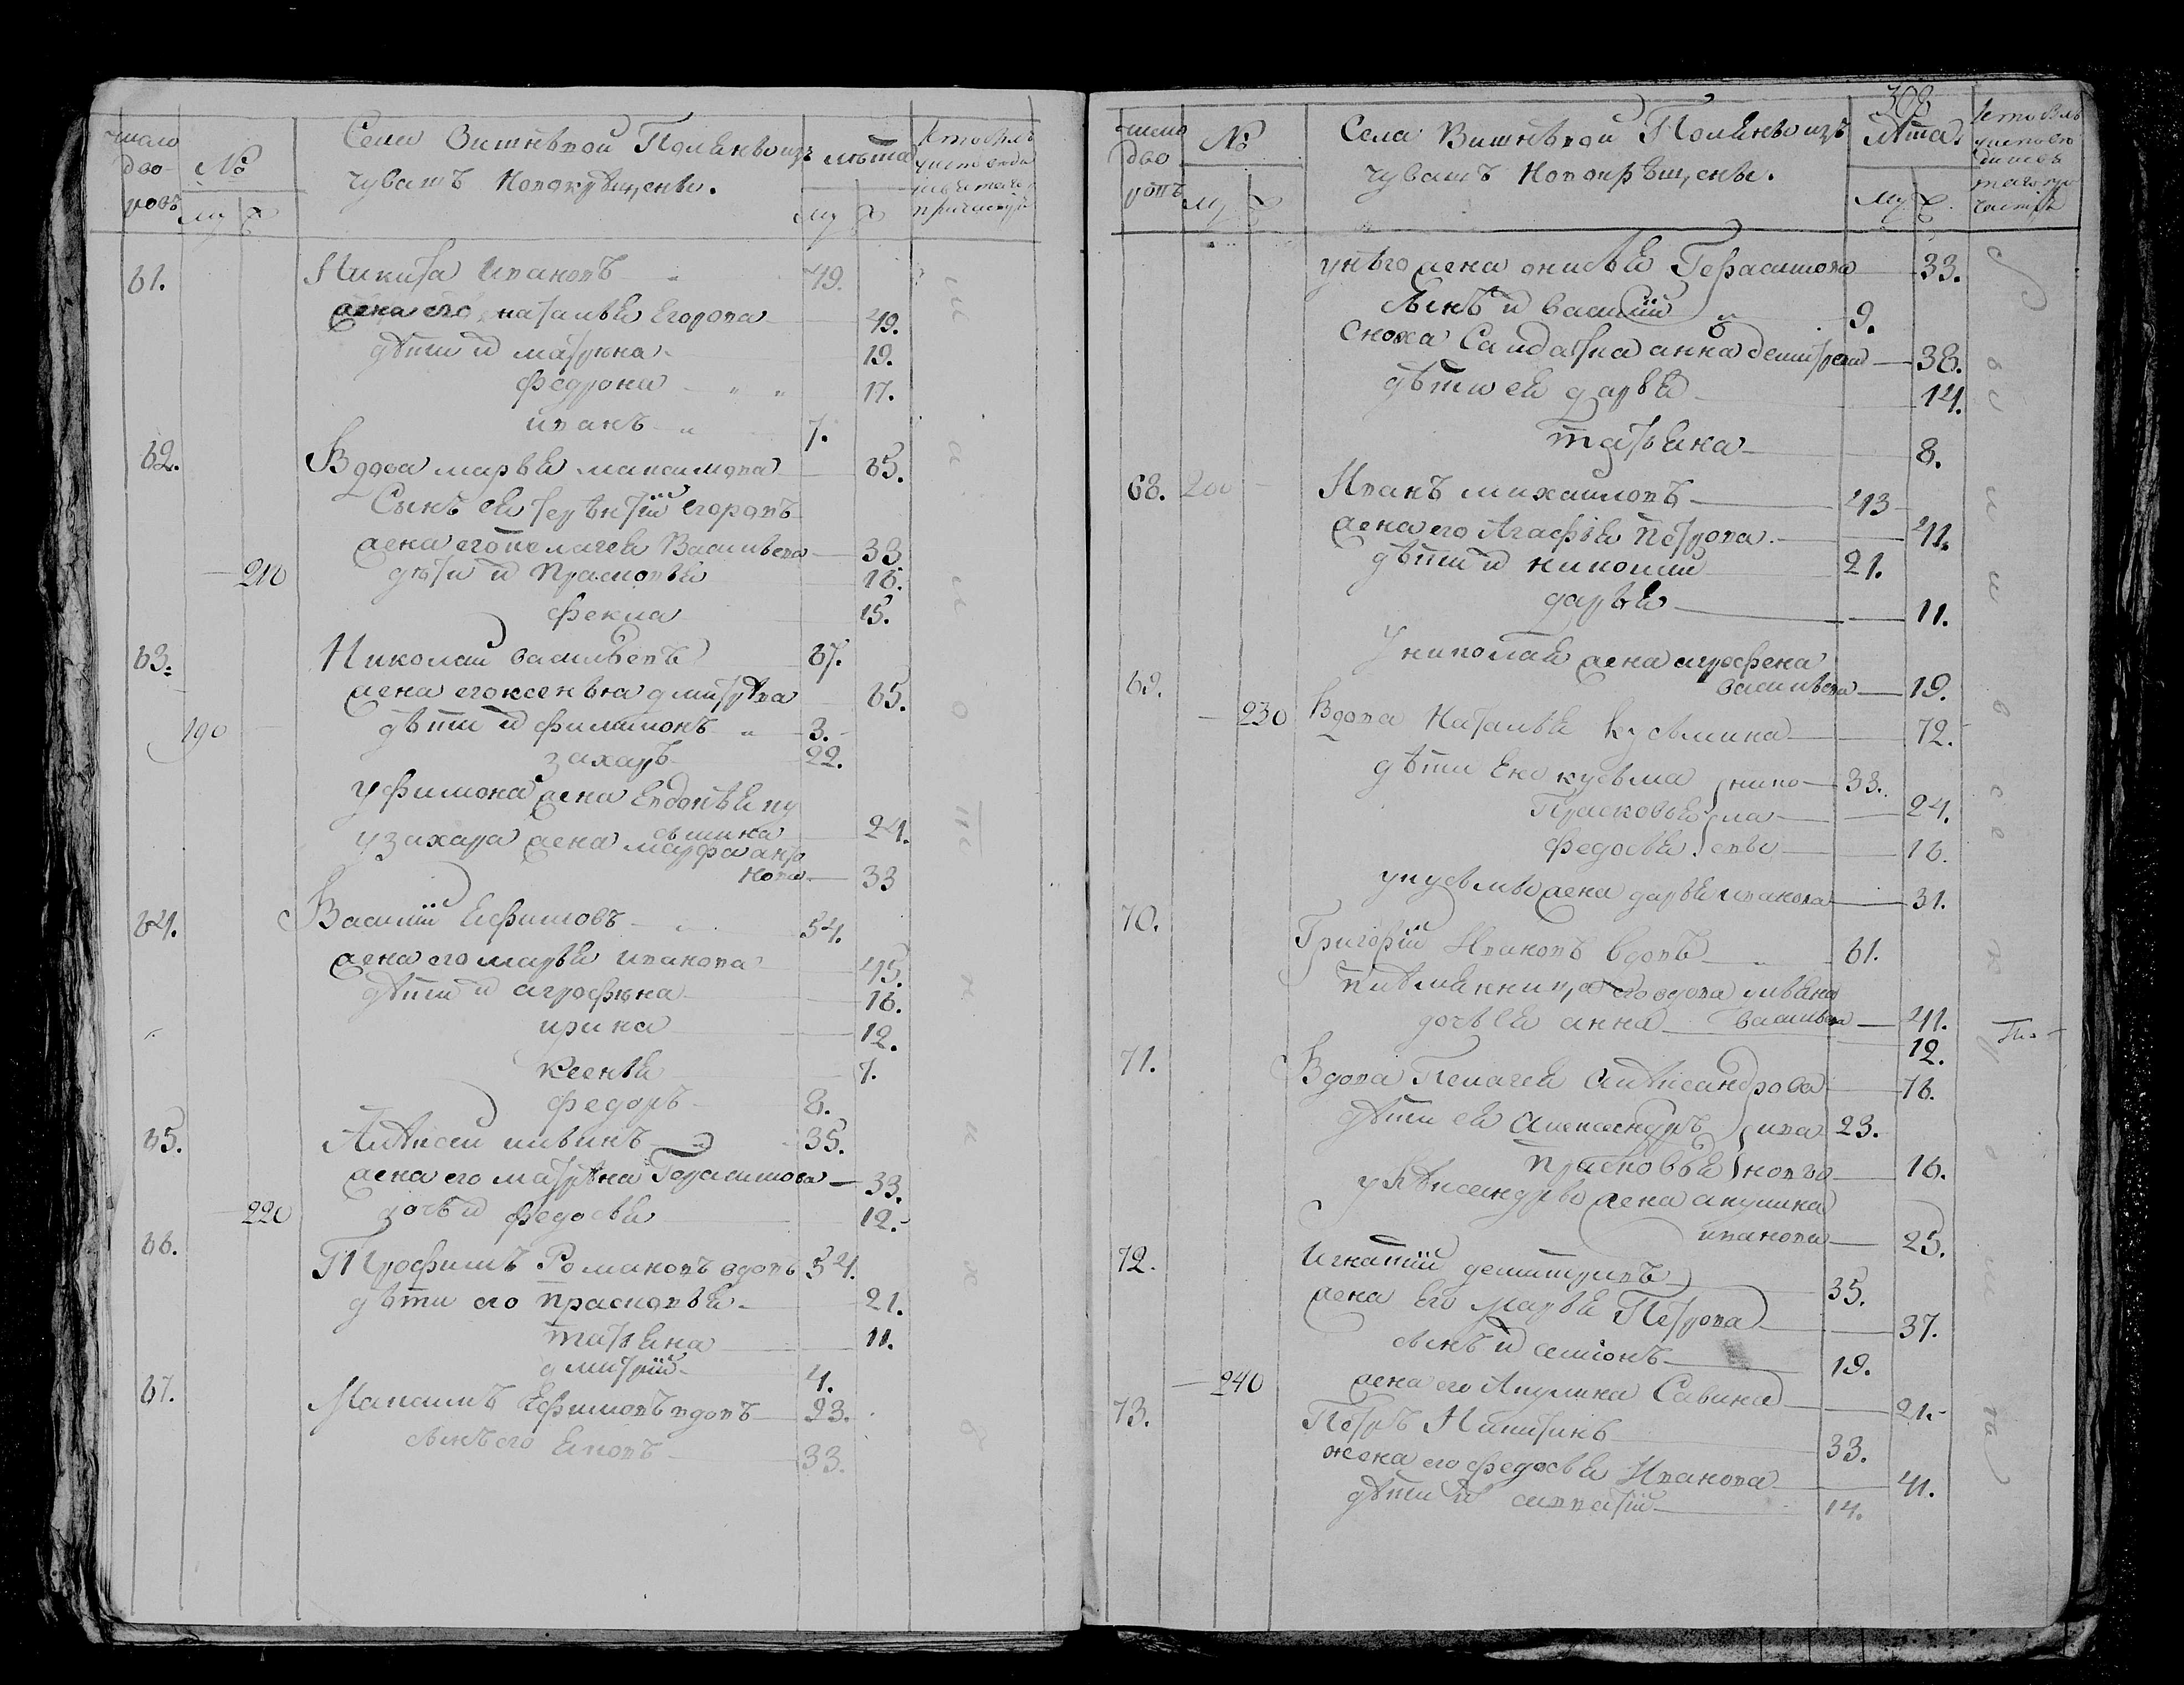 число дво ровъ
№
му ж
Села Вишнѣвой Поляны изъ
чувашъ новокрѣщены.
лѣта
му ж
61. Никита Ивановъ 49.
жена его наталья Егорова 49.
дѣти и матрона 19.
Федрона 17.
иванъ 7.
62. Вдова марья максимова 65.
Сынъ ея терѣнтїй егоровъ
жена его пелагея Васильева 33
210 дѣти и Прасковья 16.
фекла 15.
63. Николай васильевъ 67.
жена его ксенья дмитрѣва 65.
190 дѣти и филимонъ 3.
захаръ 22.
у Филмона жена Евдокѣя ку
сьмина 24.
у захара жена марфа анто
нова 33
64. Василїй Ефимовъ 54.
жена его марья иванова 45.
дѣти и агрофѣна 16.
ирина 12.
ксенья 7.
федоръ 8.
65. Алѣксей ильинъ 35.
жена его матрѣна Герасимова 33.
220 дочь и федосья 12.
66. Трофимъ Романовъ вдовъ 54.
дѣти его Прасковья 21.
татьяна 11.
дмитрїй 4.
67. Максимъ Ефимовъ вдовъ 93.
сынъ его Яковъ 33.
308
число дво ровъ
№
му ж
Села Вишнѣвой Поляны изъ
чувашъ новокрѣщены.
лѣта
му ж
у нѣго жена онисья Герасимова 33.
сынъ и василїй 9.
сноха Салдатка анна демитрева 38.
дѣти ея дарья 14.
татьяна 8.
68. 200 Иванъ михайловъ 43
жена его Агафья Петрова 41.
дѣти и николай 21.
дарья 11.
У николая жена агрофена
васильева 19.
69.
230 Вдова Наталья Кусьмина 72.
дѣти Ея кусьма нико 33.
Прасковья ла 24.
федосья евы 16.
у кусьмы жена дарья иванова 31.
70. Григорїй Ивановъ вдовъ 61.
плѣмянница его вдова ульяна
васильева 41.
дочь ея анна 12.
71. Вдова Пелагея Алѣксандрова 76.
дѣти ея Александръ ива 23.
прасковья новы 16.
у Алѣксандры жена акулина
иванова 25.
72. Игнатїй демитривъ 35.
жена Его Марья Петрова 37.
сынъ и семіонъ 19.
240 жена его Акулина Савина 21.
73. Петръ Никитинъ 33.
жена его федосья Иванова 41.
дѣти и 14.